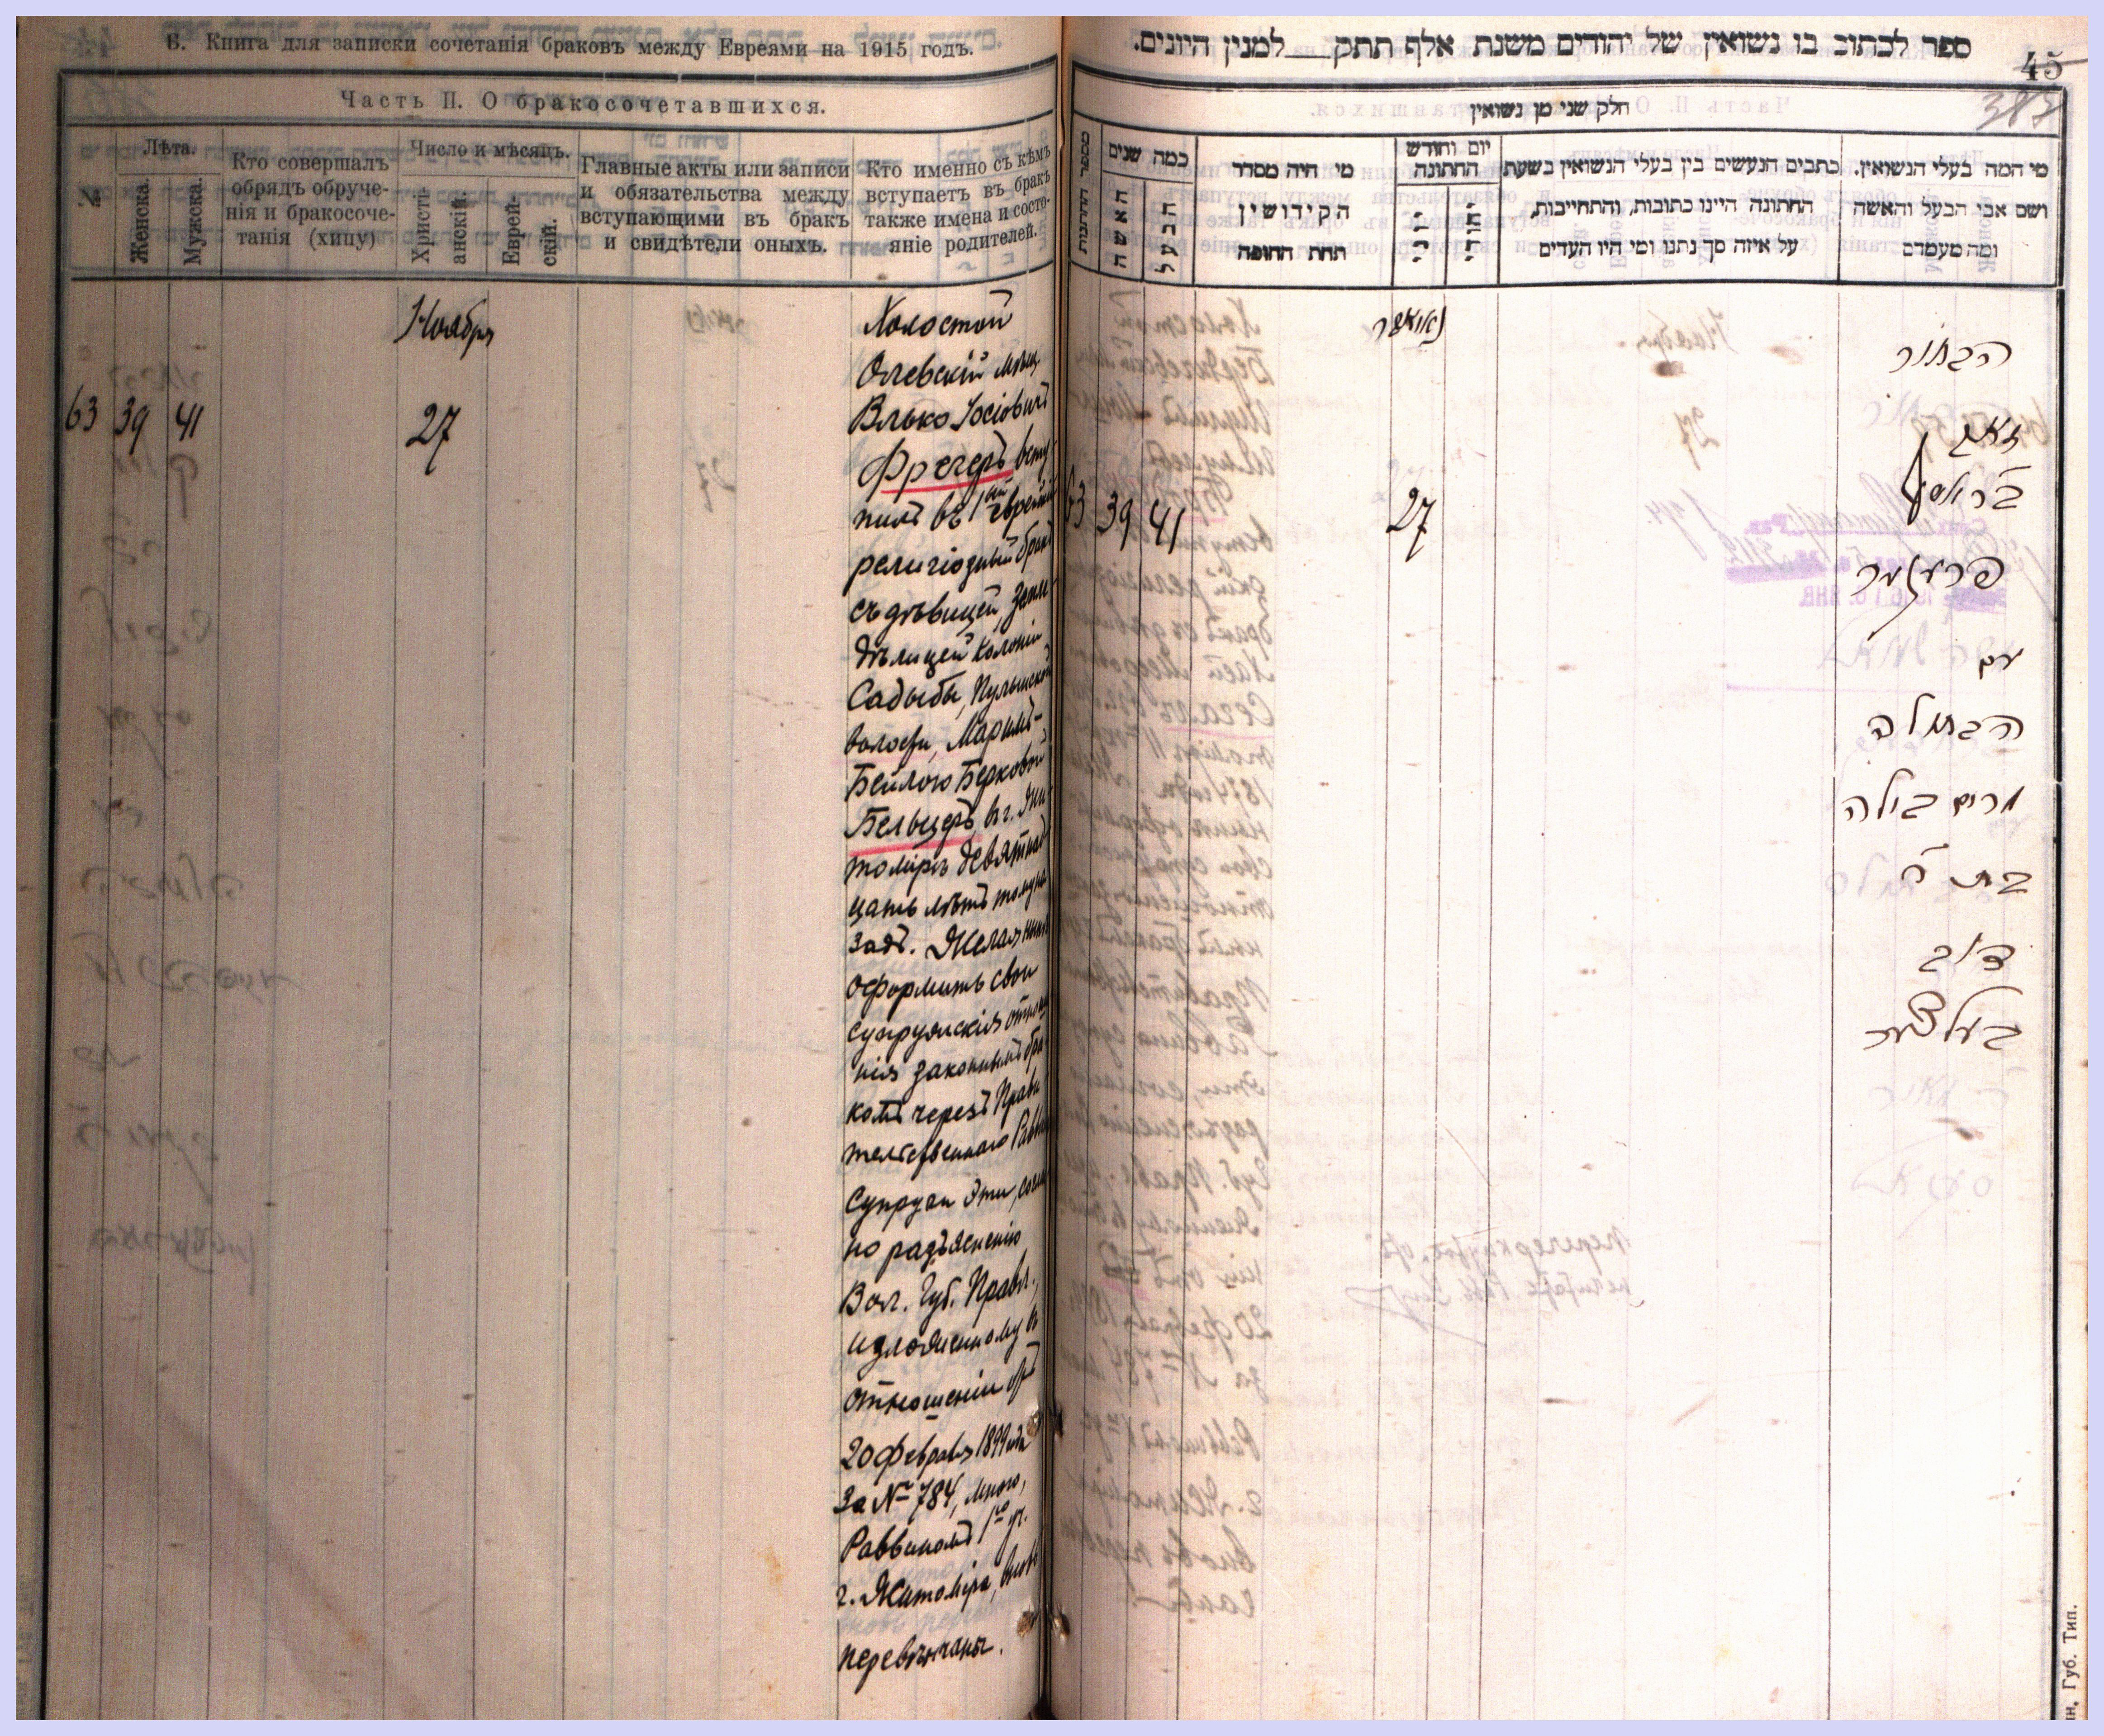 Б. Книга для записки сочетанія браковъ между Евреями на 1915 годъ.
Часть II. О бракосочетавшихся.
№
Лѣта.
Женска.
Мужска.
Кто совершалъ
обрядъ обруче-
нія и бракосоче-
танія (хипу)
Число и мѣсяцъ.
Христі-
анскій.
Еврей-
скій.
Главные акты или записи
и обязательства между
вступающими въ бракъ
и свидѣтели оныхъ.
Кто именно съ кѣмъ
вступаетъ въ бракъ
также имена и состо-
яніе родителей.
Ноября
63 39 41 27
Холостой
Олевскій мѣщ.
Волько Іосіовичъ
Фрегеръ всту
пилъ въ 1ый еврейскій
религіозный бракъ
съ дѣвицей, земле
дѣлицей колоніи
Садыбы, Пулынской
волости, Маримъ-
Бейлою Берковой
Бельцеръ, въ г. Жи
томірѣ девятнад
цать лѣтъ тому на
задъ. Желая нынѣ
оформить свои
супружскія отноше
нія законнымъ бра
комъ черезъ Прави
тельственнаго Раввина
Супруги эти, соглас
но разъясненію
Вол. Губ. Правл.,
изложенному въ
отношеніи отъ
20 февраля 1899 года
за № 784, мною,
Раввиномъ 1го уч.
г. Житоміра, вновь
перевѣнчаны.
ספר לכתוב בו נשואין של יהודים משנת אלף תתק למנין היונים.
45
387
חלק שני מן נשואין
מספר החתונות
כמה שנים
האשה
הבעל
מי היה מסדר
הקידושין
תחת החופה
יום וחודש
החתונה
כתבים הנעשים בין בעלי הנשואין בשעת
החתונה היינו כתובות, והתחייבות,
על איזה סך נתנו ומי היו העדים
מי המה בעלי הנשואין.
ושם אבי הבעל והאשה
ומה מעמדם
נאיאבר
63 39 41 27
הבחור
זאב
פרעגער
עם
הבתולה
מרים ביילה
בת ר'
דוב
בעלצער
ин. Губ. Тип.